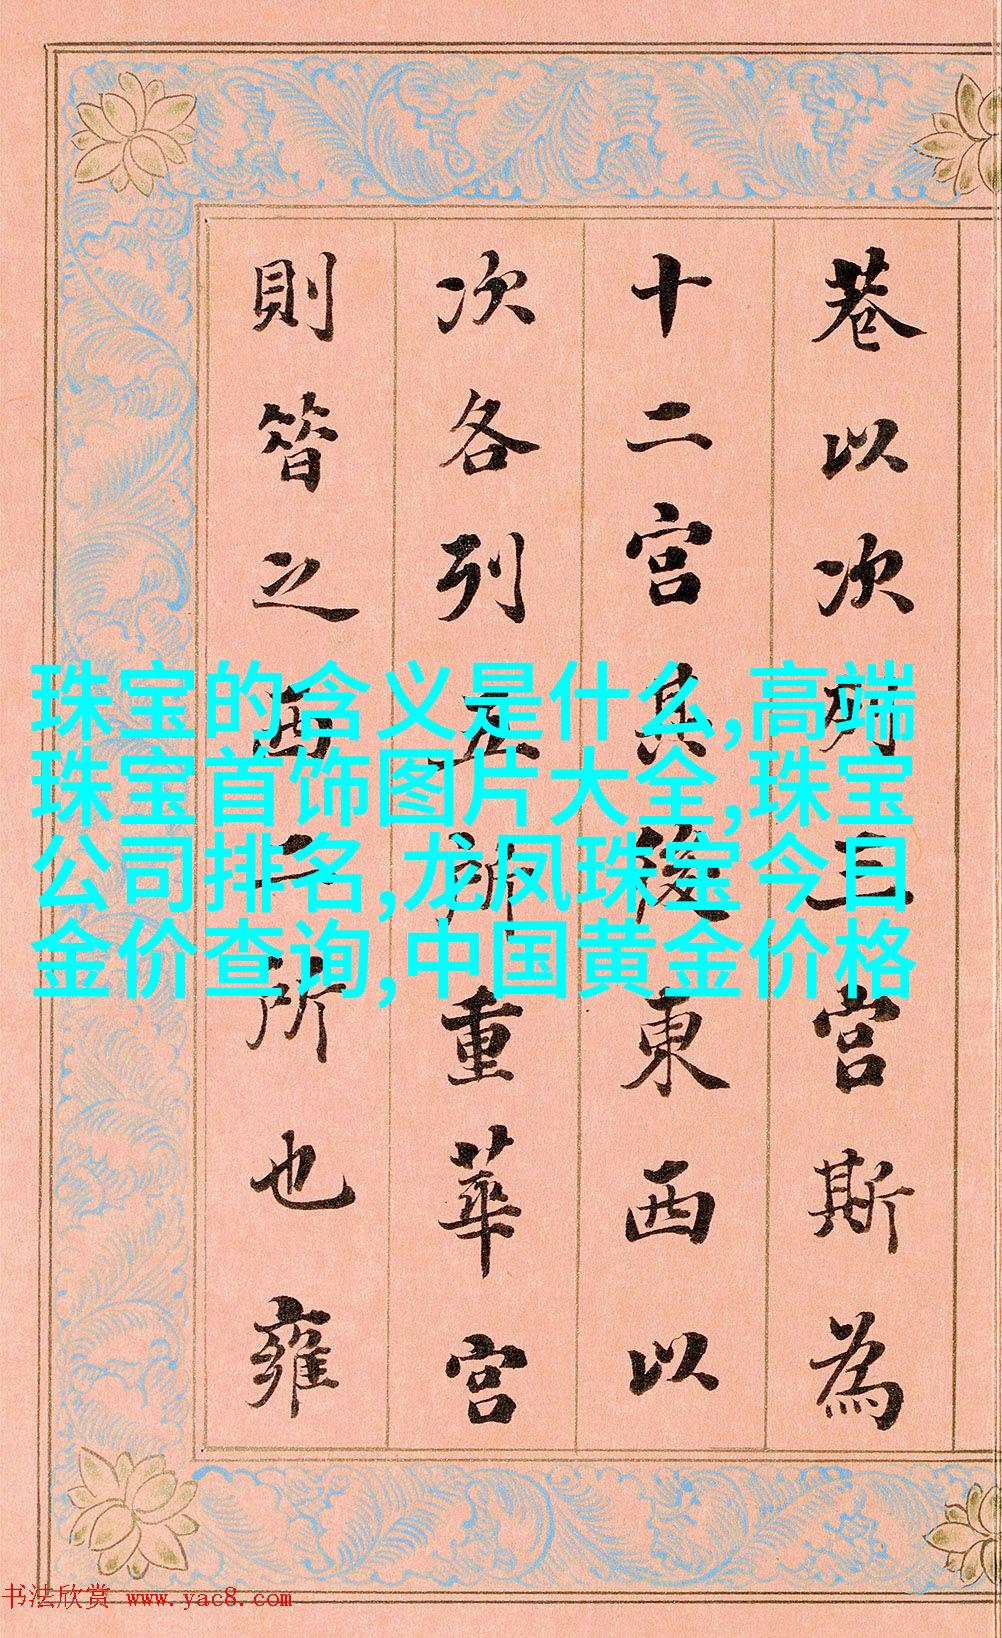 巷以次列三宫斯為
十二宫其後東西以
次各列五所重華宫
則昔之西二所也雍
珠宝的含义是什么,高端
珠宝首饰图片大全,珠宝
公司排名,龙凤珠宝今日
金价查询,中国黄金价格
书法欣赏 www.yac8.com